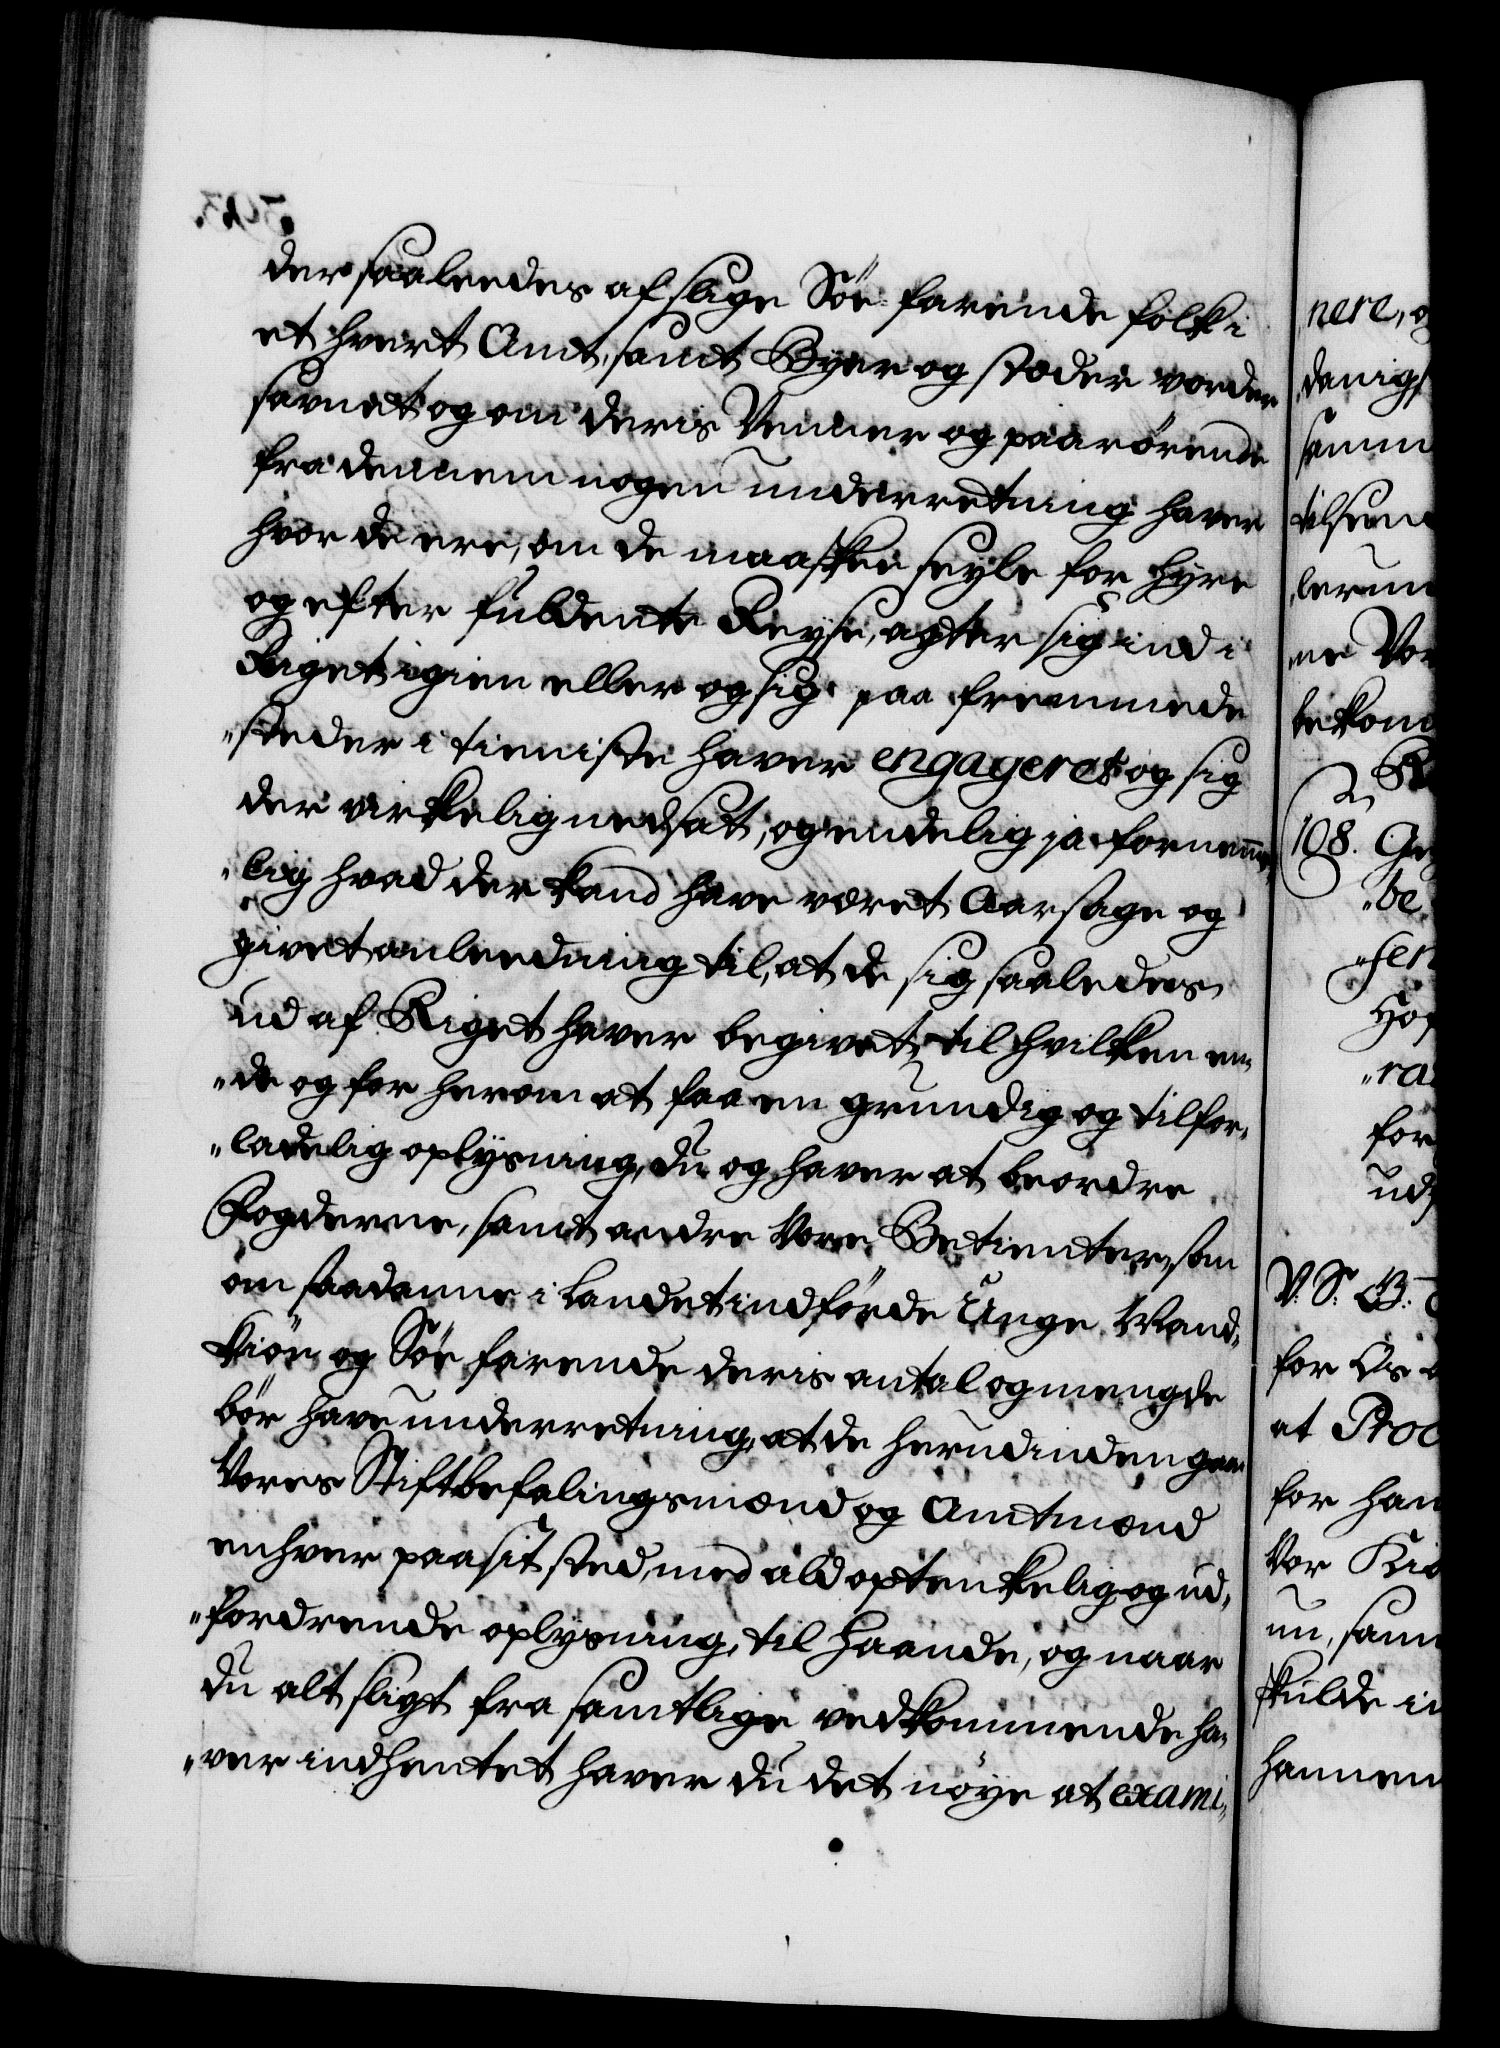 der saaleedes af slige Söe farende folk i
et hvert Amt, samt Byer og stæder vorder
savnet og om deris Venner og paarörende
fra dennem nogen underretning haver
hvor de ere, om de maaskee seyle for hyre
og efter fuldente Reyse, agter sig ind i
Riget igien eller og sig paa fremmede
„steder i tieniste haver engageret og sig
der virkelig nedsat, og endelig ja fornem̄e,
„lig hvad der kand have været Aarsage og
givet anleedning til, at de sig saaledes
ud af Riget haver begivet, til hvilken en,
„de og for herom at faa en grundig og tilfor,
„ladelig oplysning, du og haver at beordre
Fogderne, samt andre Vore Betienter, som
om saadanne i Landet indförde Unge Mand,
kiön og Söe farende deris antal og mengde
bör have underretning, at de herudinden gaae
Vores Stiftbefalingsmænd og Amtmænd
enhver paa sit sted, med ald optenkelig og ud,
„fordrende oplysning, til haande, og naar
du alt sligt fra samtlige vedkommende ha,
„ver indhentet haver du det nöye at exami,
nere, og
danig
samm
tilsen
lerun
ne Vor
bekom
108.
be
sen
ra
for
ud
V. S. B.
for Os
at Proc
for han
Vor
un, sam
skulde in
hannem